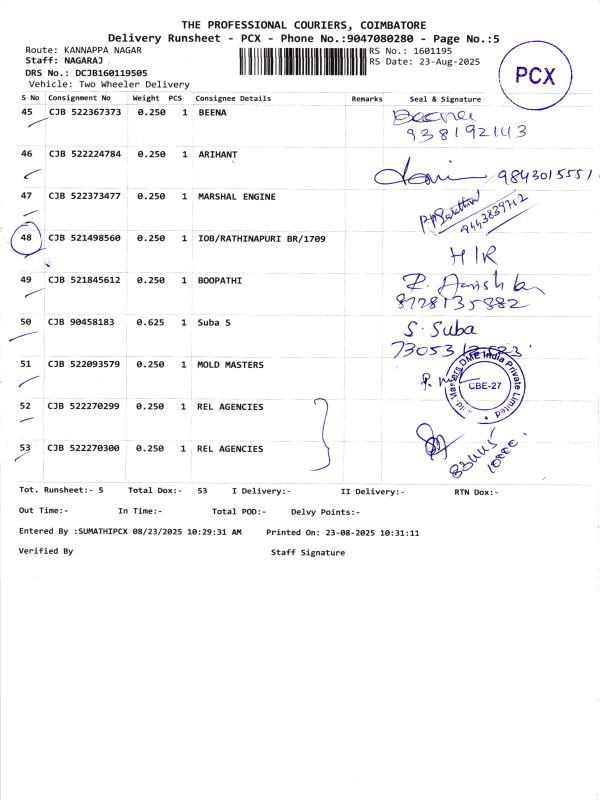 THE PROFESSIONAL COURIERS, COIMBATORE
Delivery Runsheet - PCX - Phone No.:9047080280 - Page No.:5
Route: KANNAPPA NAGAR RS No.: 1601195
Staff: NAGARAJ RS Date: 23-Aug-2025
DRS No.: DCJB160119505
Vehicle: Two Wheeler Delivery
PCX
S No Consignment No Weight PCS Consignee Details Remarks Seal & Signature
45 CJB 522367373 0.250 1 BEENA Beena
938192143
46 CJB 522224784 0.250 1 ARIHANT 9843015551
47 CJB 522373477 0.250 1 MARSHAL ENGINE
9443839712
48 CJB 521498560 0.250 1 IOB/RATHINAPURI BR/1709
H/R
49 CJB 521845612 0.250 1 BOOPATHI
8778135882
50 CJB 90458183 0.625 1 Suba S S. Suba
51 CJB 522093579 0.250 1 MOLD MASTERS
Masters DME India Private Limited
CBE-27
52 CJB 522270299 0.250 1 REL AGENCIES
53 CJB 522270300 0.250 1 REL AGENCIES
10000
Tot. Runsheet:- 5 Total Dox:- 53 I Delivery:- II Delivery:- RTN Dox:-
Out Time:- In Time:- Total POD:- Delvy Points:-
Entered By :SUMATHIPCX 08/23/2025 10:29:31 AM Printed On: 23-08-2025 10:31:11
Verified By Staff Signature